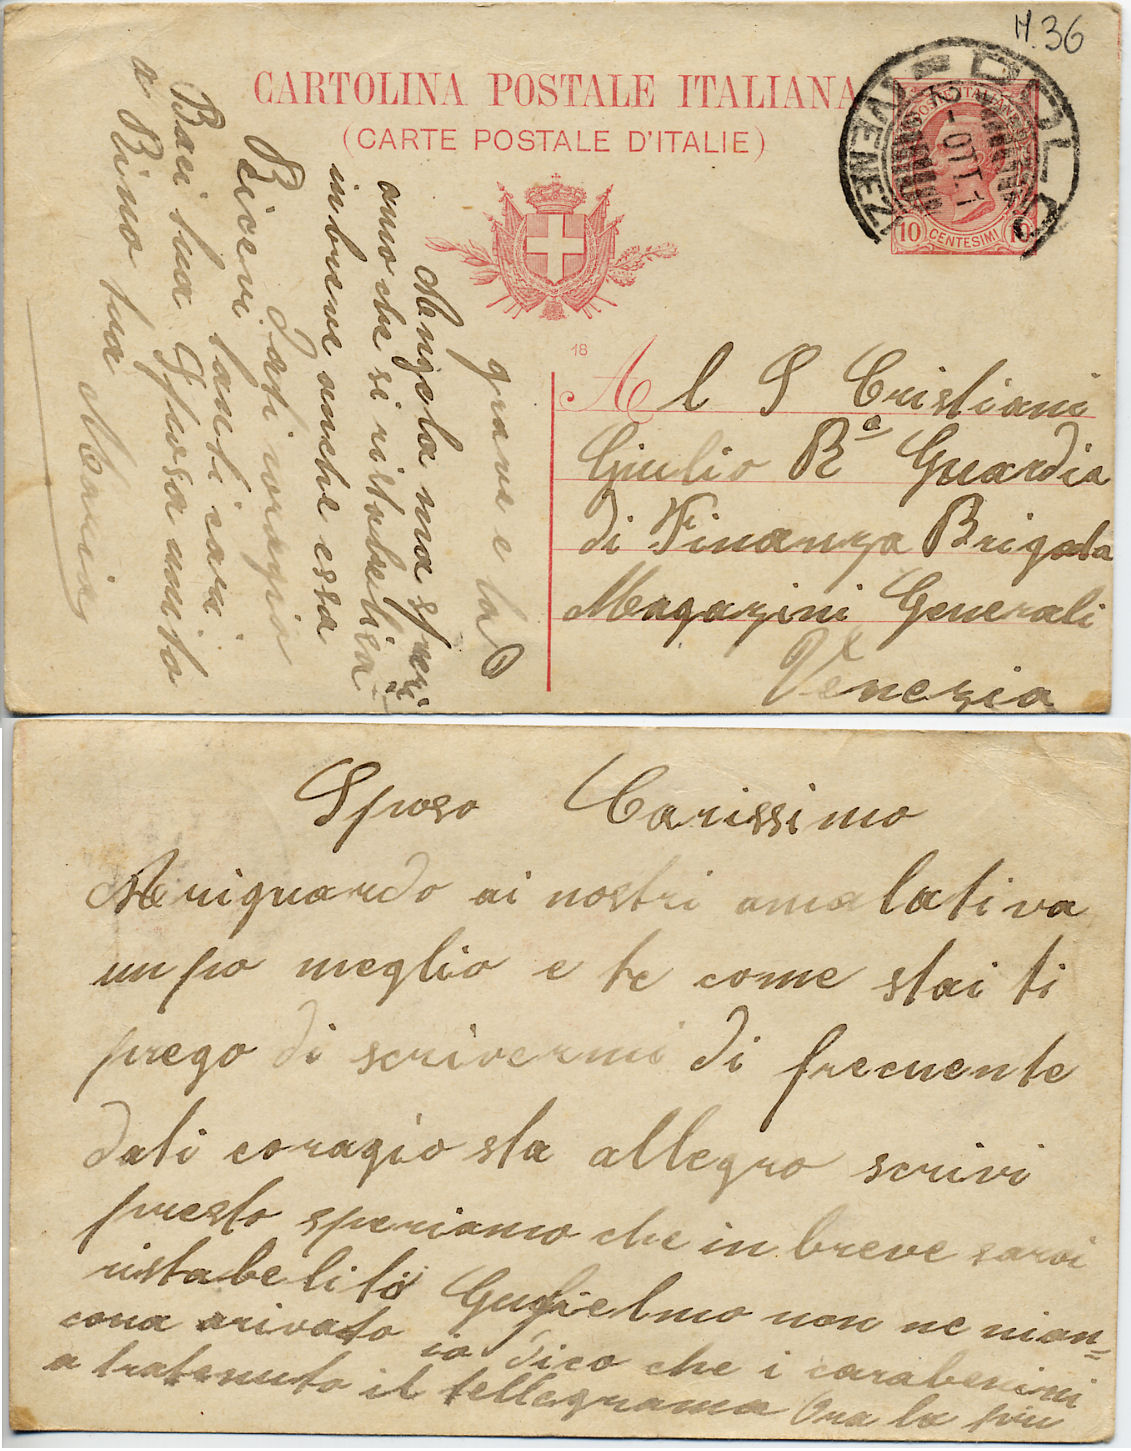 H.36
CARTOLINA POSTALE ITALIANA
(CARTE POSTALE D'ITALIE)
VENEZIA
10
CENTESIMI
10
18
A l S Cristiani
Giulio Rª Guardia
di Finanza Brigata
Magazini Generali
Venezia
grave e la
Angela ma speri
amo che si ristabelisa
in breve anche essa
Dati coragio
Ricevi tanti cari
Baci tua Sposa unito
a Bino tua Maria
Sposo Carissimo
A riguardo ai nostri amalati va
un po meglio e te come stai ti
prego di scrivermi di frecuente
dati coragio sta allegro scrivi
presto speriamo che in breve sarai
ristabelito Guglielmo non ne nian=
cora arivato io dico che i carabenieri
a tratenuto il tellegrama Ora la piu